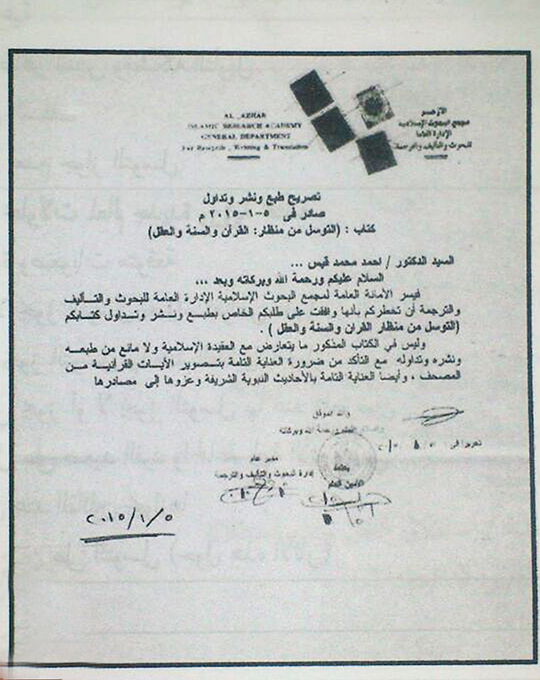 AL _AZHAR
ISLAMIC RESEARCH ACADEMY
GENERAL DEPARTMENT
For Research , Writing & Translation
الأزهر
مجمع البحوث الإسلامية
الإدارة العامة
للبحوث والتأليف والترجمة
تصريح طبع ونشر وتداول
صادر فى ٥-١-٢٠١٥ م
كتاب : (التوسل من منظار: القرآن والسنة والعقل)
السيد الدكتور / احمد محمد قيس ...
السلام عليكم ورحمة الله وبركاته وبعد ...
فيسر الأمانة العامة لمجمع البحوث الإسلامية الإدارة العامة للبحوث والتأليف
والترجمة أن تخطركم بأنها وافقت على طلبكم الخاص بطبع ونشر وتداول كتابكم
(التوسل من منظار القرآن والسنة والعقل ) .
وليس في الكتاب المذكور ما يتعارض مع العقيدة الإسلامية ولا مانع من طبعه
ونشره وتداوله مع التأكد من ضرورة العناية التامة بتصوير الآيات القرآنية من
المصحف ، وأيضا العناية التامة بالأحاديث النبوية الشريفة وعزوها إلى مصادرها
والله الموفق
ورحمة الله وبركاته
تحريرا فى
مدير عام
إدارة البحوث والتأليف والترجمة
الأمين العام
٢٠١٥/١/٥